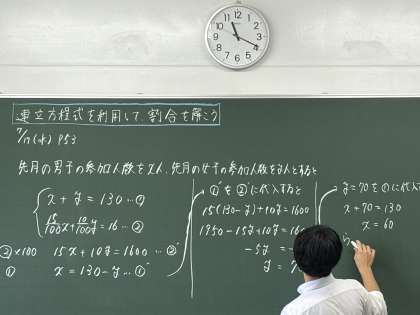 12
1
2
3
4
5
6
7
8
9
10
11
連立方程式を利用して、割合を解こう
7/17(水) P53
先月の男子の参加人数をx人、先月の女子の参加人数をy人とすると
x + y = 130 …①
15/100x + 10/100y = 16 …②
②×100 15x + 10y = 1600 …②'
① x = 130 - y …①'
①'を②'に代入すると
15(130 - y) + 10y = 1600
1950 - 15y + 10y = 160
-5y = -
y = 7
y = 70を①に代入
x + 70 = 130
x = 60